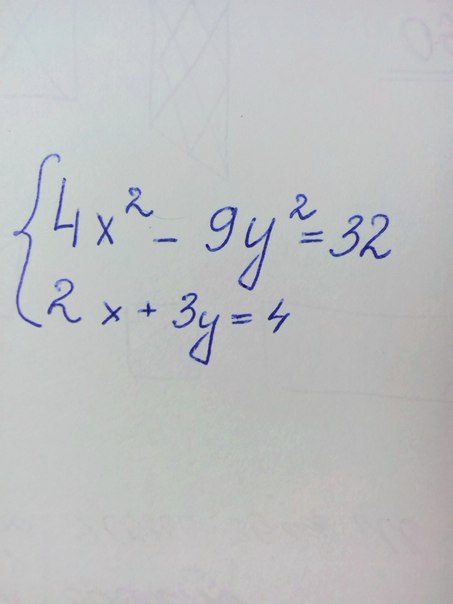 4x² - 9y² = 32
2x + 3y = 4